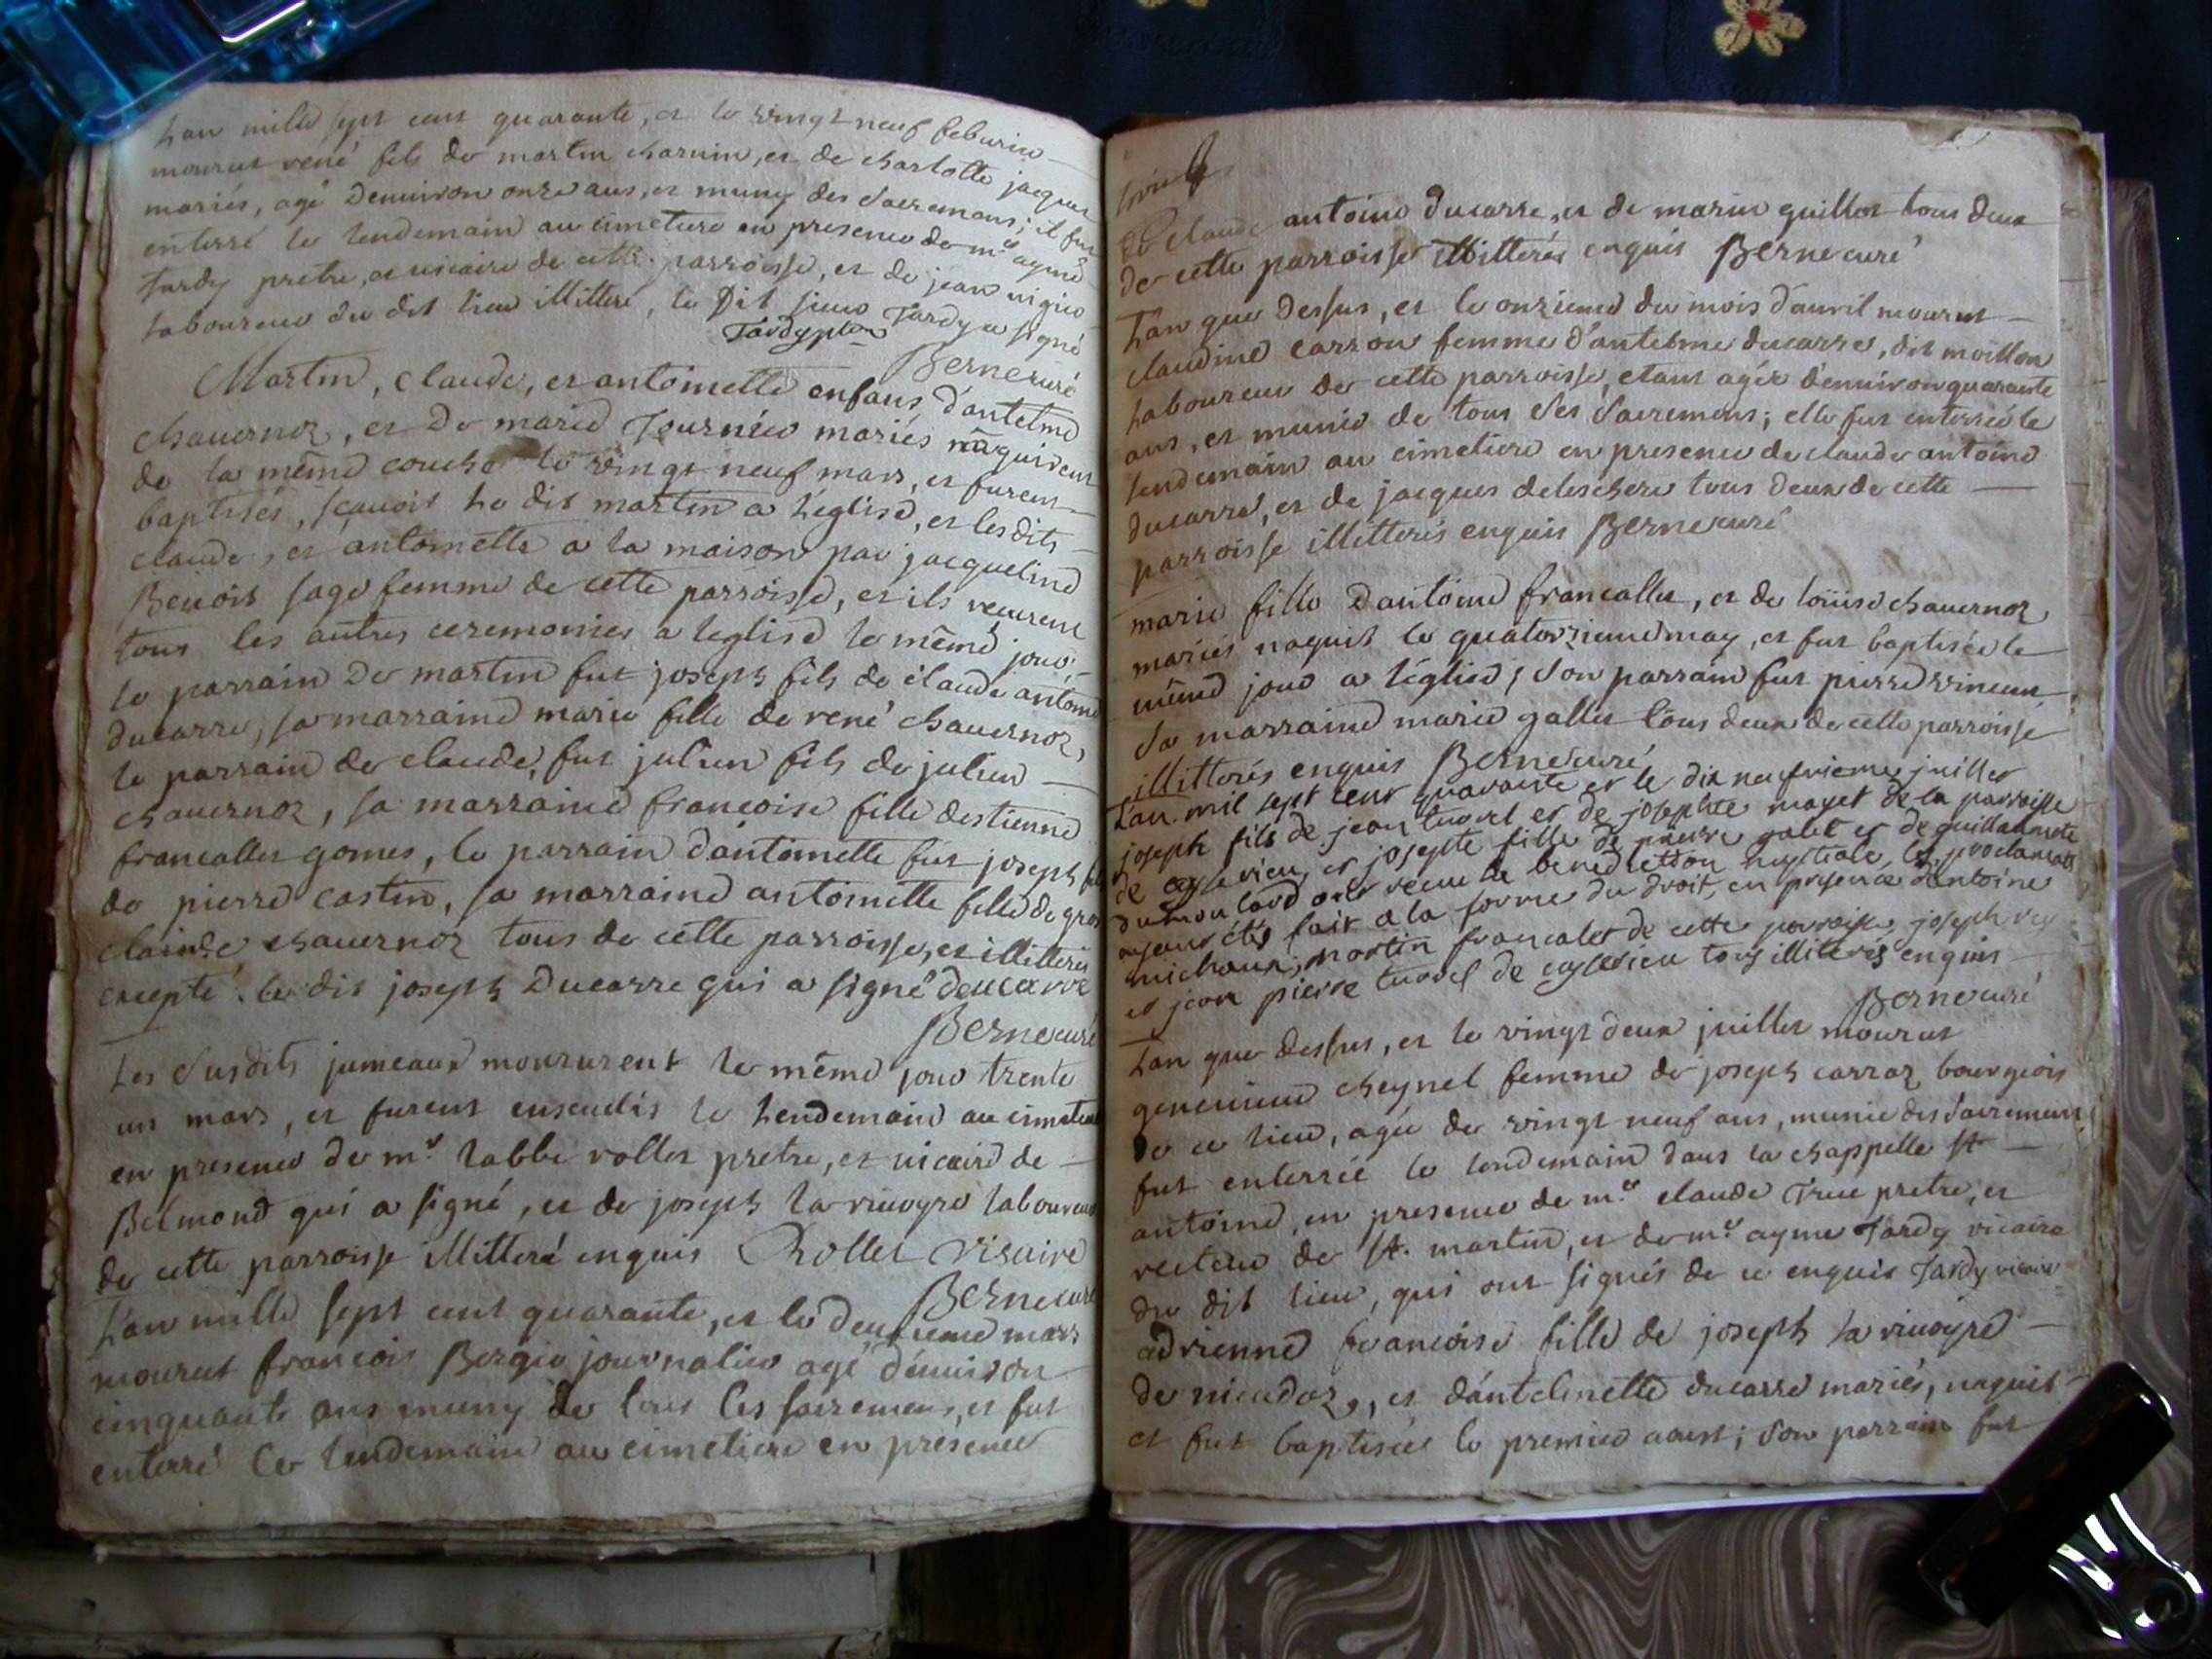 L'an mille sept cent quarante, et le vingt neuf febvrier
mourut rené fils de martin charvin, et de charlotte jacquet
mariés, agé d'environ onze ans, et muny des sacremens; il fut
enterré le lendemain au cimetiere en presence de mr aymé
Tardy pretre, et vicaire de cette parroisse, et de jean
laboureur du dit lieu illitteré, le dit sieur Tardy a signé
Tardy ptre
Berne curé
Martin, claude, et antoinette enfans d'antelme
chavernoz, et de marie Fournier mariés nâquirent
de la même couche le vingt neuf mars, et furent
baptisés, sçavoir le dit martin a l'église, et les dits
claude, et antoinette a la maison par jacqueline
Benoit sage femme de cette parroisse, et ils receurent
tous les autres ceremonies a l'eglise le même jour
le parrain de martin fut joseph fils de claude antoine
ducarre, sa marraine marie fille de rené chavernoz,
le parrain de claude, fut julien fils de julien
chavernoz, sa marraine francoise fille destienne
francallet gomes, le parrain d'antoinette fut joseph
de pierre castin, sa marraine antoinette fille de
claude chavernoz tous de cette parroisse, et illitterés
excepté le dit joseph Ducarre qui a signé deucarre
Berne curé
Les susdits jumeaux moururent le même jour trente
un mars, et furent ensevelis le lendemain au cimetiere
en presence de mr l'abbé rollet pretre, et vicaire de
Belmond qui a signé, et de joseph la rivoyre laboureur
de cette parroisse illitteré enquis Rollet visaire
Berne curé
L'an mille sept cent quarante, et le deuxieme mars
mourut francois Bergier journalier agé d'environ
cinquante ans muny de tous les sacremens, et fut
enterré le lendemain au cimetiere en presence
de claude antoine ducarre, et de marin guillot tous deux
de cette parroisse illitterés enquis Berne curé
L'an que dessus, et le onzieme du mois d'avril mourut
claudine carron femme d'antelme ducarre, dit moillon
laboureur de cette parroisse, etant agée d'environ quarante
ans, et munie de tous ses sacremens; elle fut enterrée le
lendemain au cimetiere en presence de claude antoine
ducarre, et de jacques deleschere tous deux de cette
parroisse illitterés enquis Berne curé
marie fille d'antoine francallet, et de loüise chavernoz
mariés naquit le quatorzieme may, et fut baptisée le
même jour a l'église; son parrain fut pierre vincent
sa marraine marie gallet tous deux de cette parroisse
illitterés enquis Berne curé
L'an mil sept cent quarante et le dix neufvieme juillet
joseph fils de jean tuovel et de josephte mayet de la parroisse
de et josepte fille de pierre galet et de guillaumete
dumoulard ont receu la benediction nuptiale les proclamats
ayant étés fait a la forme du droit, en presence d'antoine
michaux, martin francalet de cette parroisse, joseph
et jean pierre tuovel de tous illiterés enquis
Berne curé
L'an que dessus, et le vingt deux juillet mourut
genevieve cheynel femme de joseph carraz bourgeois
de ce lieu, agée de vingt neuf ans, munie des sacremens,
fut enterrée le lendemain dans la chappelle st
antoine, en presence de mr claude pretre, et
recteur de st. martin, et de mr ayme Tardy vicaire
du dit lieu, qui ont signés de ce enquis Tardy vicaire
adrienne francoise fille de joseph la rivoyre
de et d'antelmette ducarre mariés, naquit
et fut baptisée le premier aoust; son parrain fut